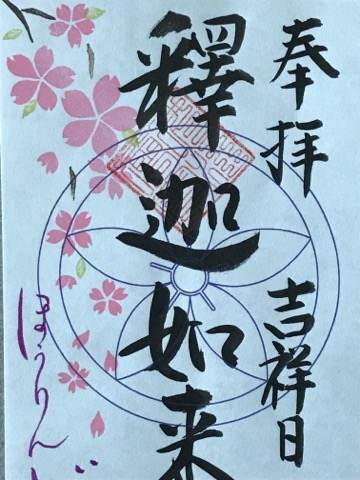 奉拝 吉祥日
釋迦如来
ほうりんじ